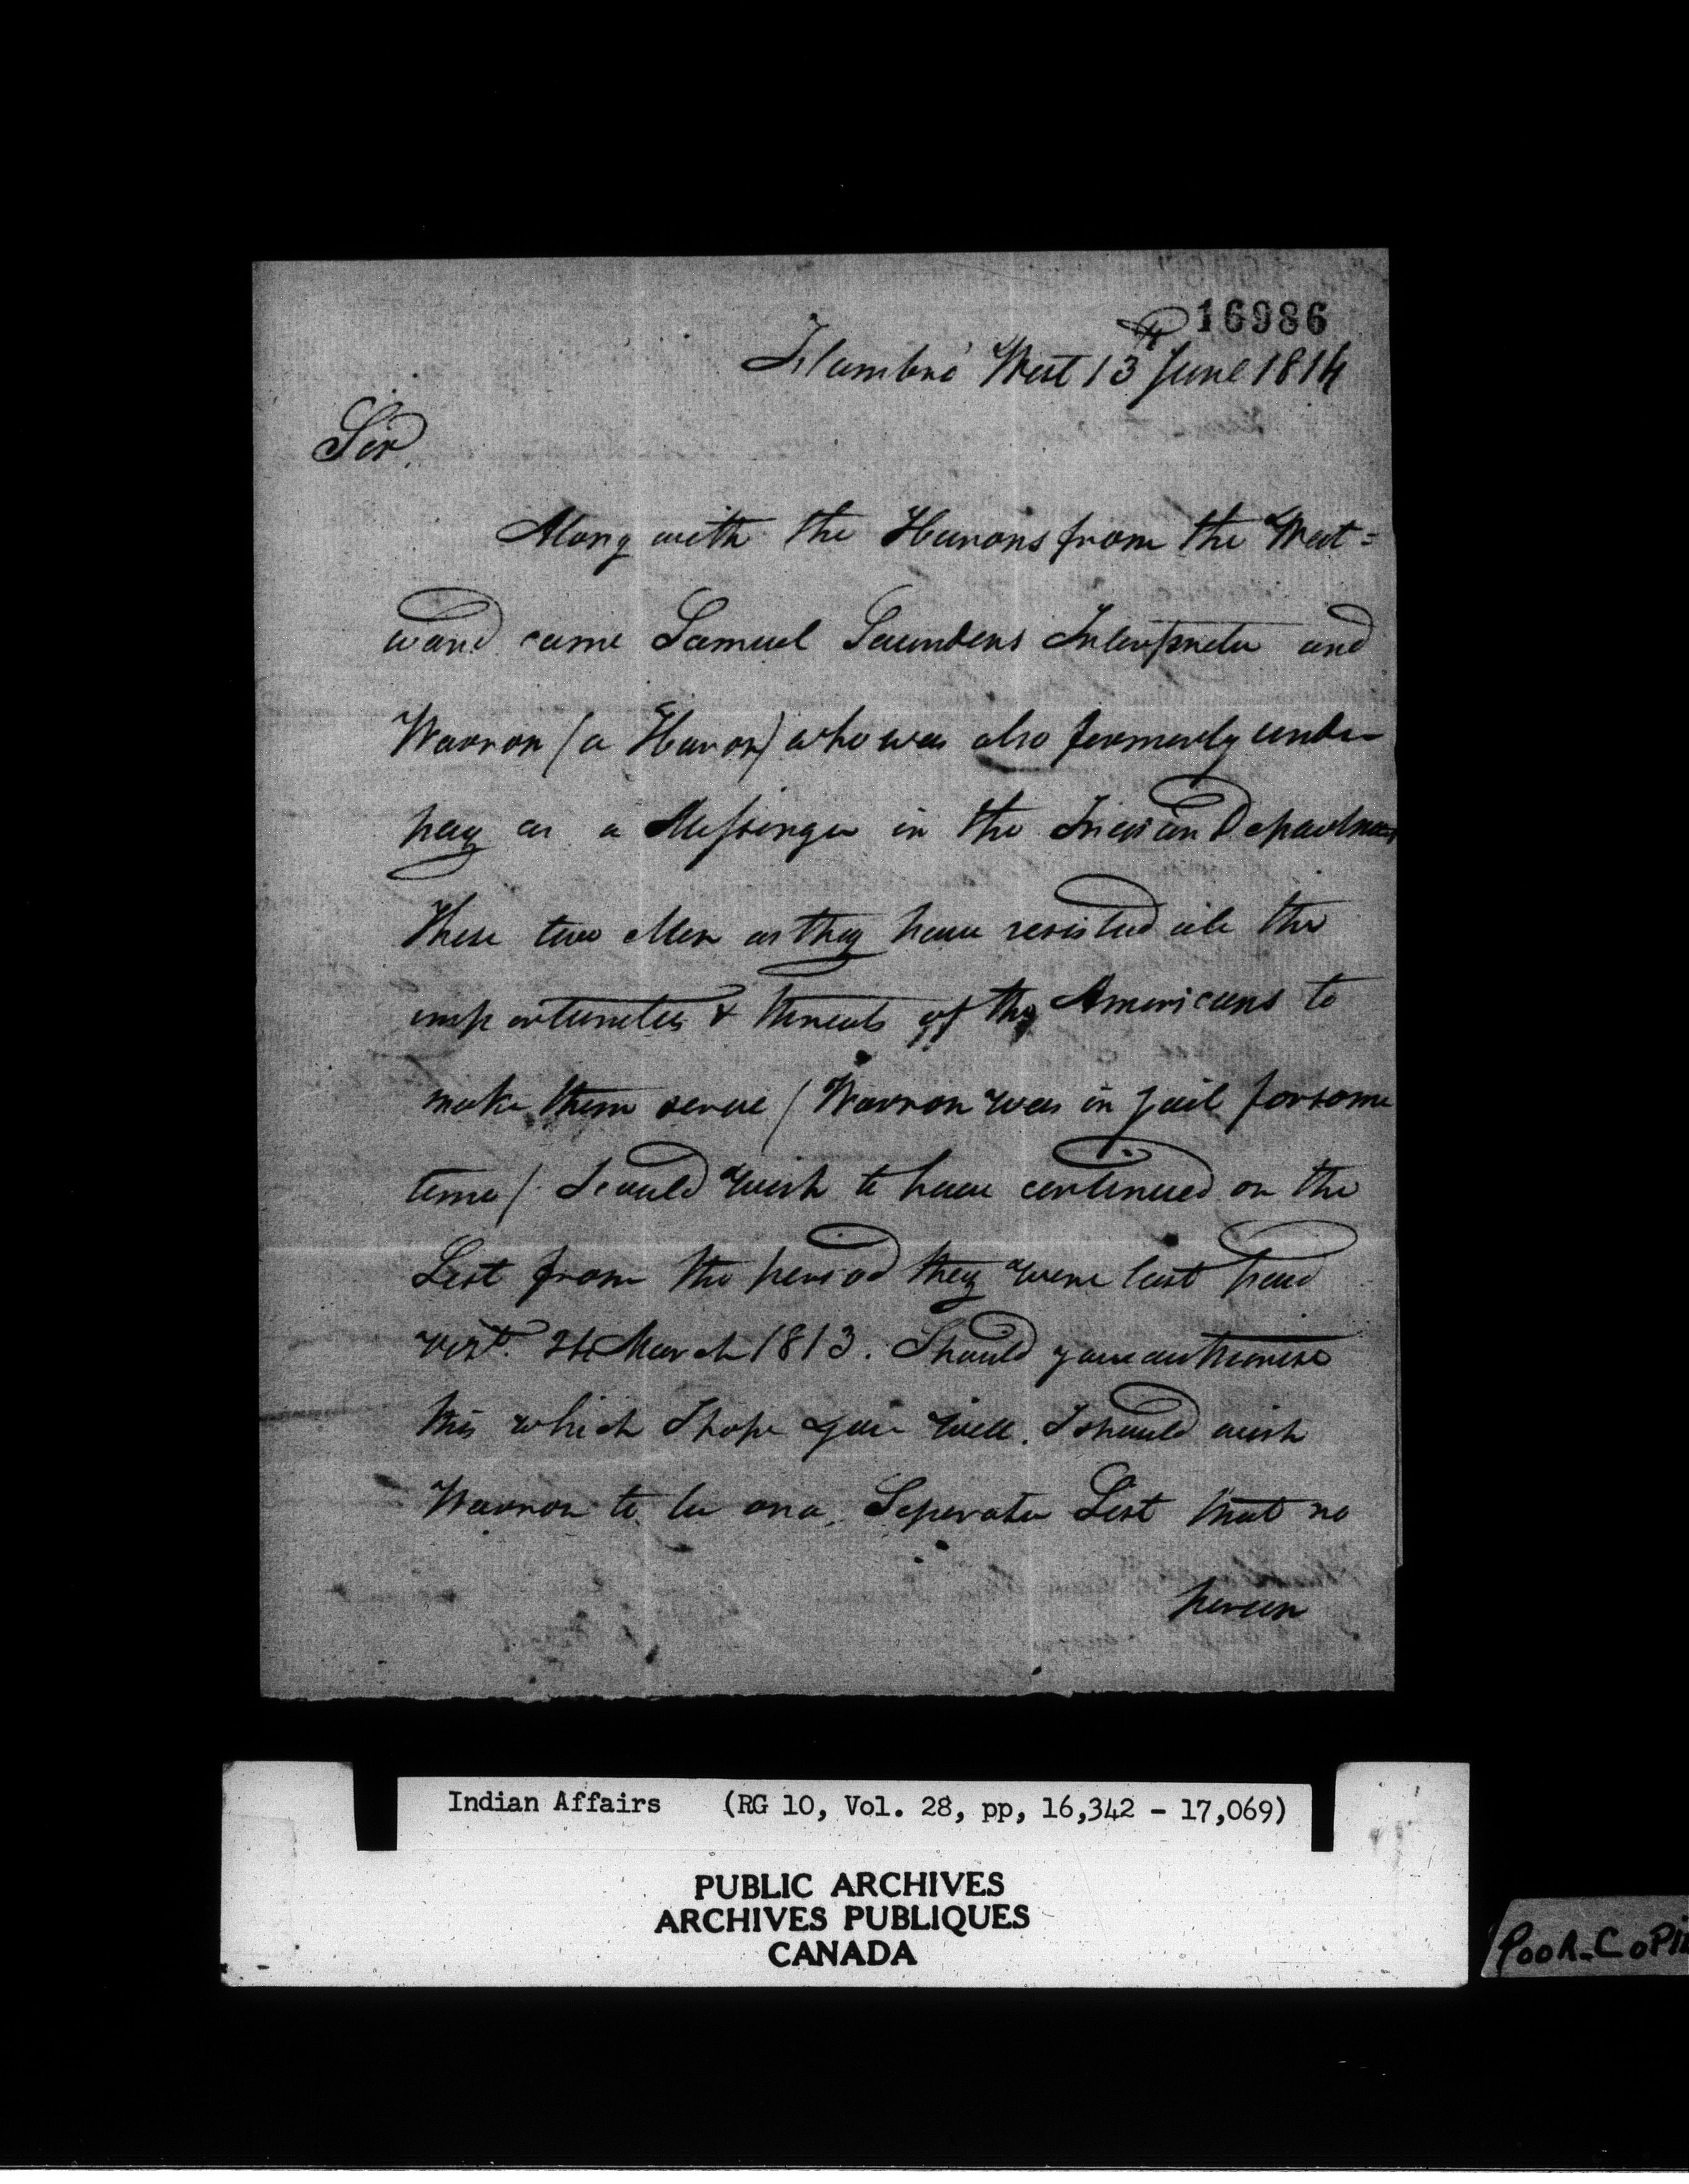 16986
Flambro' West 13th June 1814
Sir,
Along with the Hurons from the West=
ward came Samuel Saunders Interpreter and
Warron (a Huron) who was also formerly under
pay as a Messenger in the Indian Department
These two Men as they have resisted all the
importunities & threats of the Americans to
make them serve (Warron was in jail for some
time) I could wish to have continued on the
List from the period they were last paid
vizt. 24 March 1813. Should you authorise
this which I hope you will. I should wish
Warron to be on a Seperate List that no
person
Indian Affairs (RG 10, Vol. 28, pp, 16,342 - 17,069)
PUBLIC ARCHIVES
ARCHIVES PUBLIQUES
CANADA
POOR_COPI